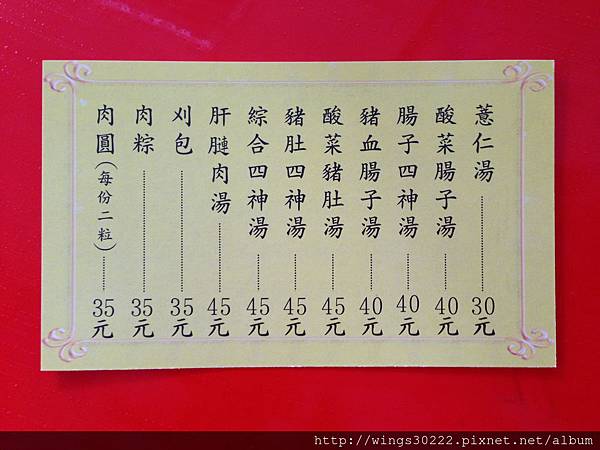 薏仁湯⋯⋯30元
酸菜腸子湯⋯⋯40元
腸子四神湯⋯⋯40元
豬血腸子湯⋯⋯40元
酸菜豬肚湯⋯⋯45元
豬肚四神湯⋯⋯45元
綜合四神湯⋯⋯45元
肝膴肉湯⋯⋯45元
刈包⋯⋯35元
肉粽⋯⋯35元
肉圓(每份二粒)⋯⋯35元
http://wings30222.pixnet.net/album